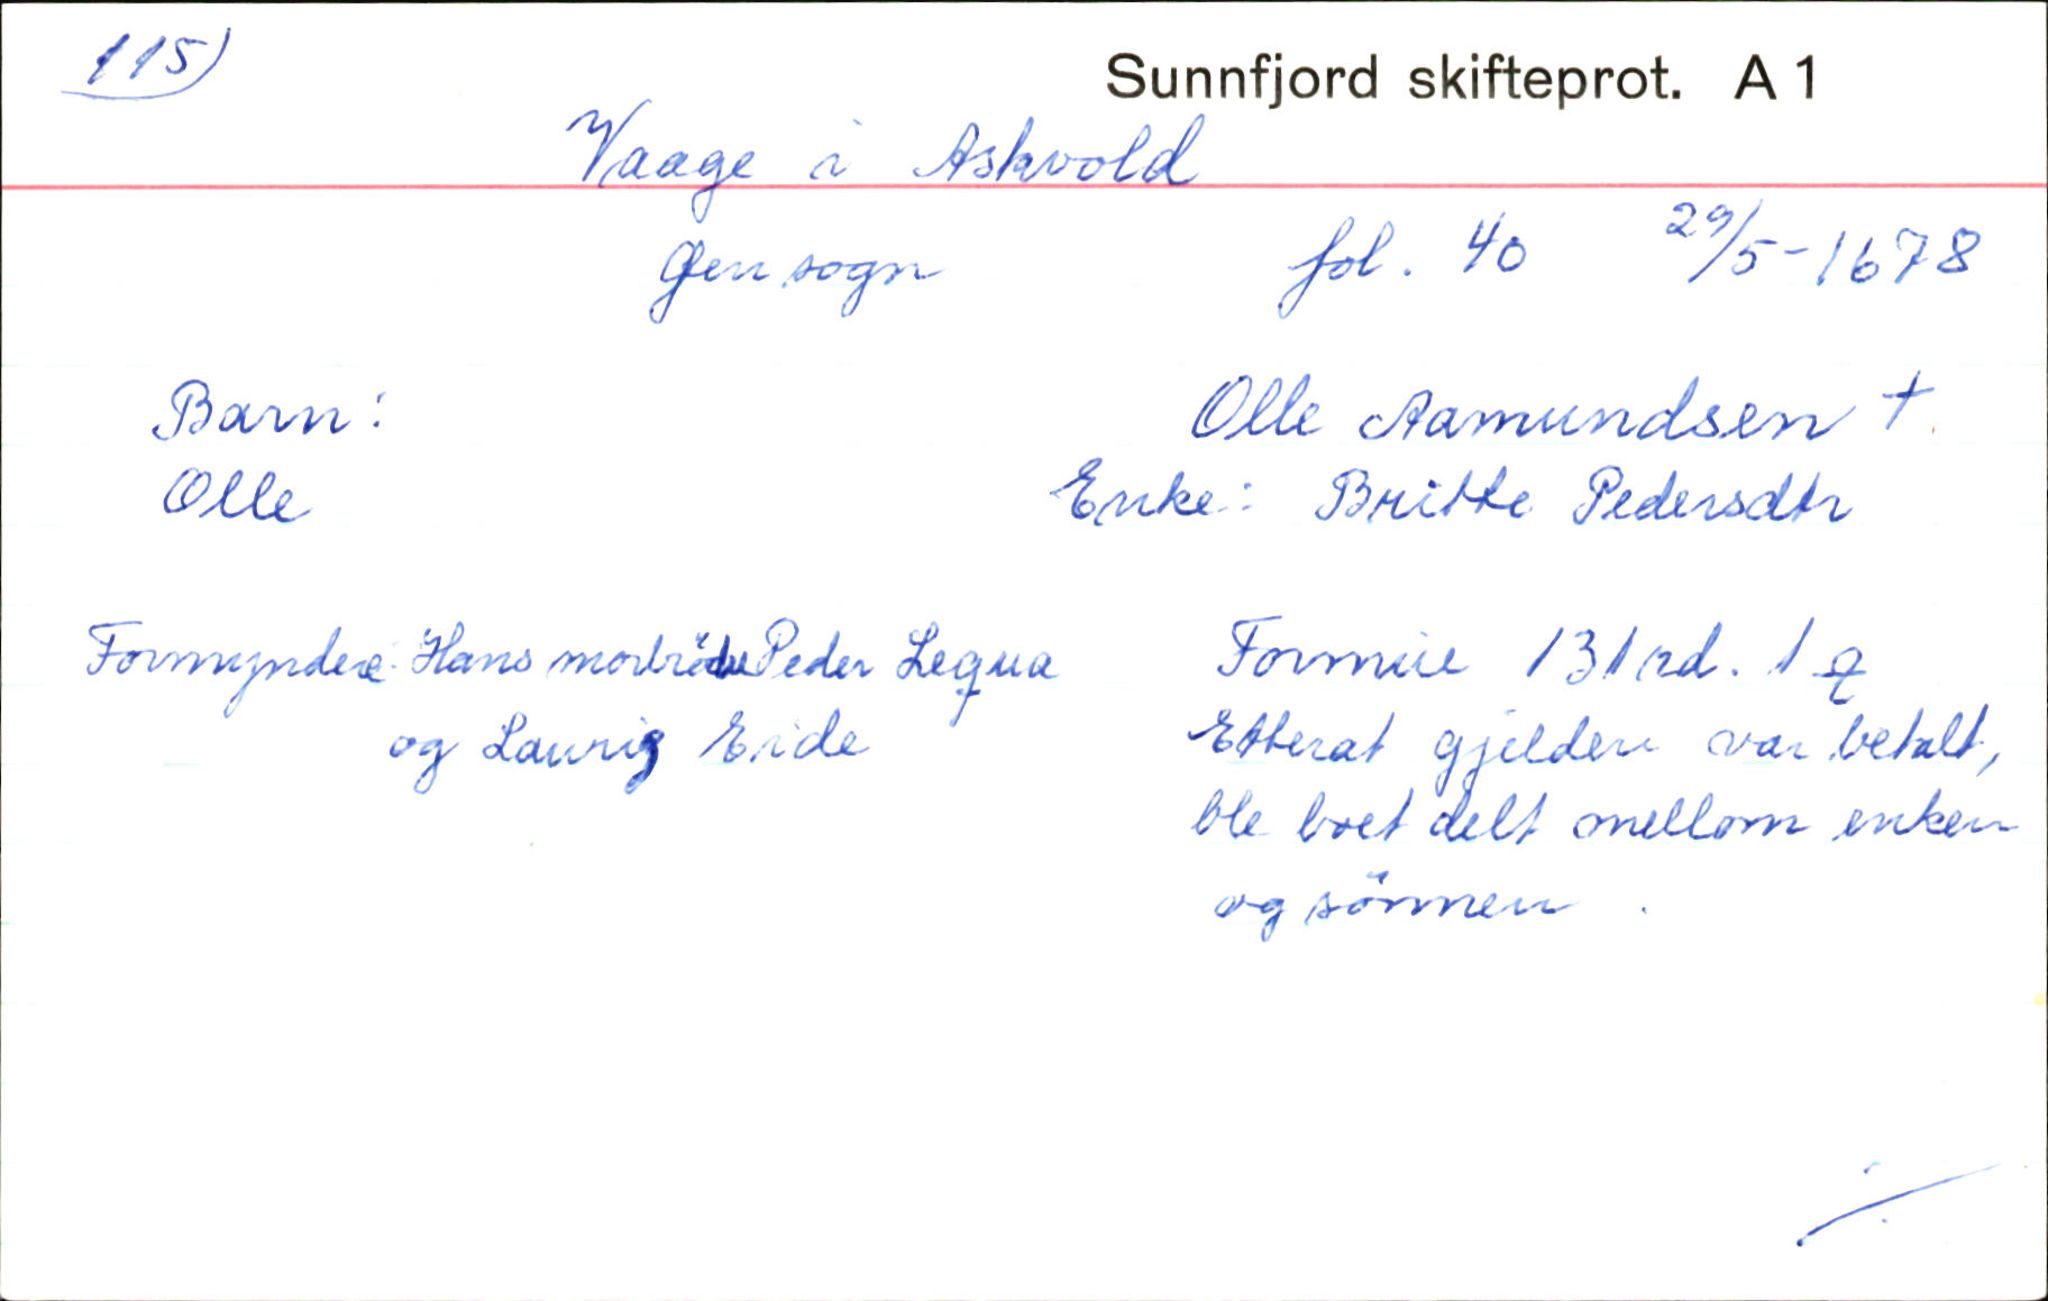 115)
Sunnfjord skifteprot. A 1
Vaage i Askvold
sogn fol. 40 29/5-1678
Barn: Olle Aamundsen +
Olle Enke: Britte Pedersdtr
Formyndere: Hans morbröder Peder Leqva Formue 131 rd. 1
og Laurig Eide Etterat gjelden var betalt,
ble boet delt mellom enken
og sönnen.